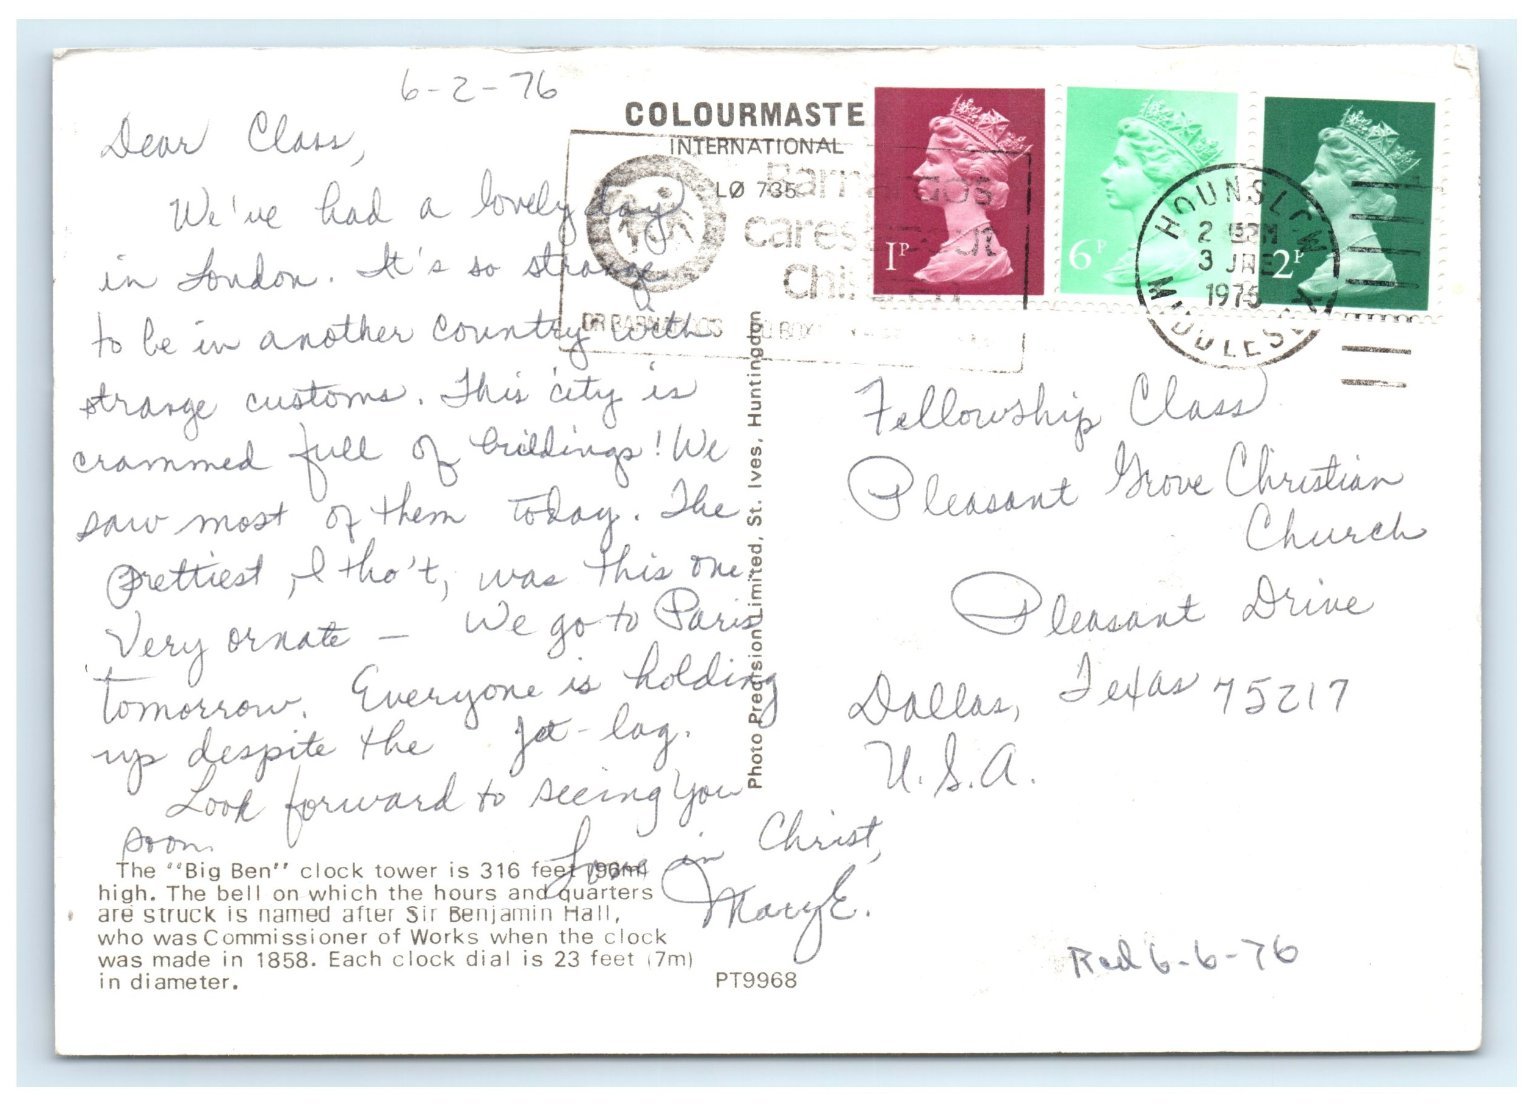 6-2-76
Dear Class,
We've had a lovely day
in London. It's so strange
to be in another country with
strange customs. This city is
crammed full of buildings! We
saw most of them today. The
prettiest, I tho't, was this one
Very ornate — We go to Paris
tomorrow. Everyone is holding
up despite the jet-lag.
Look forward to seeing you
soon.
Love in Christ,
Mary E.
The "Big Ben" clock tower is 316 feet (96m)
high. The bell on which the hours and quarters
are struck is named after Sir Benjamin Hall,
who was Commissioner of Works when the clock
was made in 1858. Each clock dial is 23 feet (7m)
in diameter.
PT9968
COLOURMASTE
INTERNATIONAL
LØ 735
Barnardos
cares about
Children
DR BARNARDOS
Photo Precision Limited, St. Ives, Huntingdon
1P
6P
2P
HOUNSLOW
3 JNE
MIDDLESEX
Fellowship Class
Pleasant Grove Christian
Church
Pleasant Drive
Dallas, Texas 75217
U.S.A.
Rcd 6-6-76